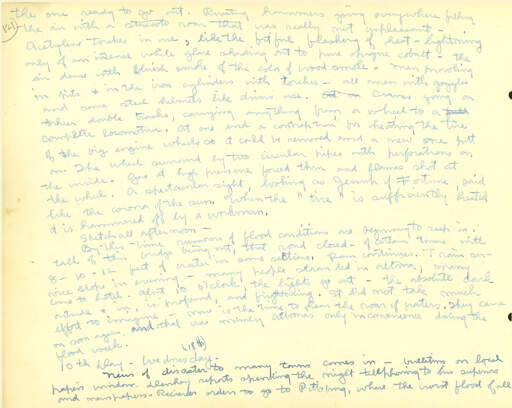 the one ready to go out. Riveting hammers going everywhere filling
the air with a staccato roar that was really not unpleasant -
Acetylene torches in use, like the fitful flashing of heat-lightning
only of an intense white glare shading out to pure opaque cobalt - the
air dense with bluish smoke of the odor of wood smoke - men
in pits & in the iron cylinders with torches - all men with goggles
and some steel helmets like divers use. Cranes going on
their double tracks, carrying anything from a wheel to a
complete locomotive. At one end a contraption for heating the tire
of the big engine wheels so it could be removed and a new one put
on. The wheel surround by two circular pipes with perforations on
the inside. Gas at high pressure forced thru and flames shot at
the wheel. A spectacular sight, looking as of Fortune, said
like the corona of the sun. When the "tire" is sufficiently heated
it is hammered off by a workman.
Sketch all afternoon -
By this time rumors of flood conditions are beginning to seep in.
talk of this bridge being out, that road closed - of certain towns with
8 - 10 - 12 feet of water in some sections. Rain continues. Train ser-
vice stops in evening - many people stranded in Altoona, many
come to hotel. About 10 o'clock, the lights go out - the absolute dark
outside is profound, and frightening. It did not take much
effort to imagine - now is the time to hear the roar of waters. They came
on soon again and that was Altoona's only inconvenience during the
flood week.
10th Day - Wednesday
News of disaster to many towns comes in - bulletins on local
paper's window. reports spending the night telephoning to his superiors
and newspapers. Receives orders to go to Pittsburg, where the worst flood of all